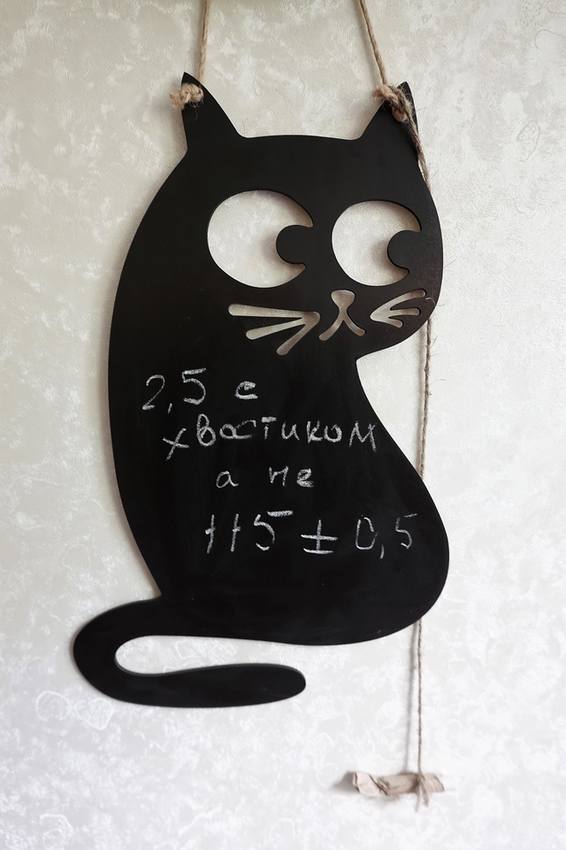 2,5 с
хвостиком
а не
115 ± 0,5